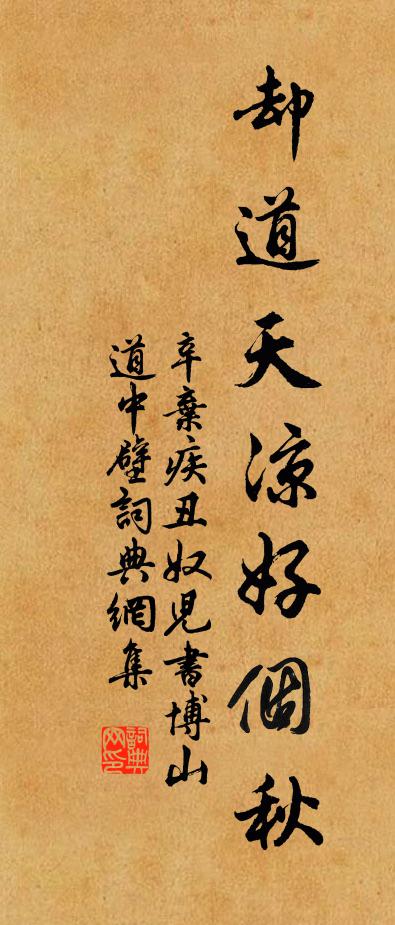 却道天凉好個秋
辛棄疾丑奴児書博山
道中壁詞典網集
詞典
网印